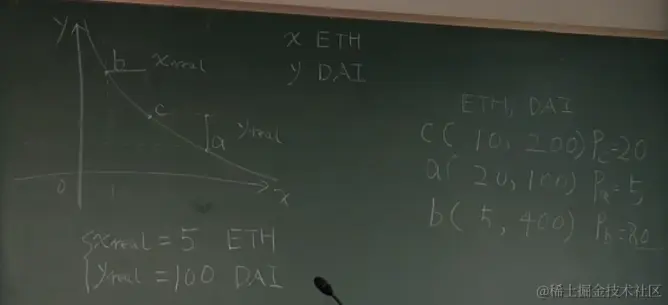 y
b
x real
x ETH
y DAI
c
a
y real
0
1
x
ETH, DAI
c( 10, 200) Pc=20
a( 20, 100) Pa=5,
b( 5, 400) Pb=80
{ x real = 5 ETH
y real = 100 DAI
@稀土掘金技术社区